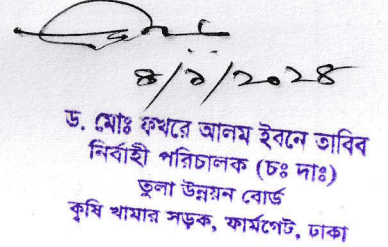 ড. মোঃ ফখরে আলম ইবনে তাবিব
নির্বাহী পরিচালক (চঃ দাঃ)
তুলা উন্নয়ন বোর্ড
কৃষি খামার সড়ক, ফার্মগেট, ঢাকা